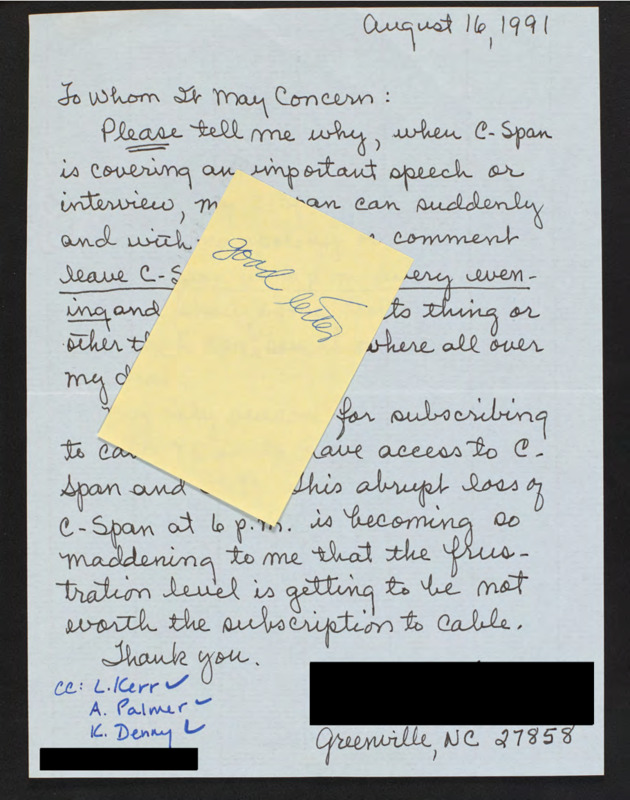 August 16, 1991
To Whom It May Concern:
Please tell me why, when C-Span
is covering an important speech or
interview, m an can suddenly
and with comment
leave C-S ery even-
ing and ts thing or
other th where all over
my d
for subscribing
to ca ave access to C-
Span and This abrupt loss of
C-Span at 6 p.m. is becoming so
maddening to me that the frus-
tration level is getting to be not
worth the subscription to cable.
Thank you.
good letter
cc: L. Kerr ✓
A. Palmer ✓
K. Denny ✓
Greenville, NC 27858